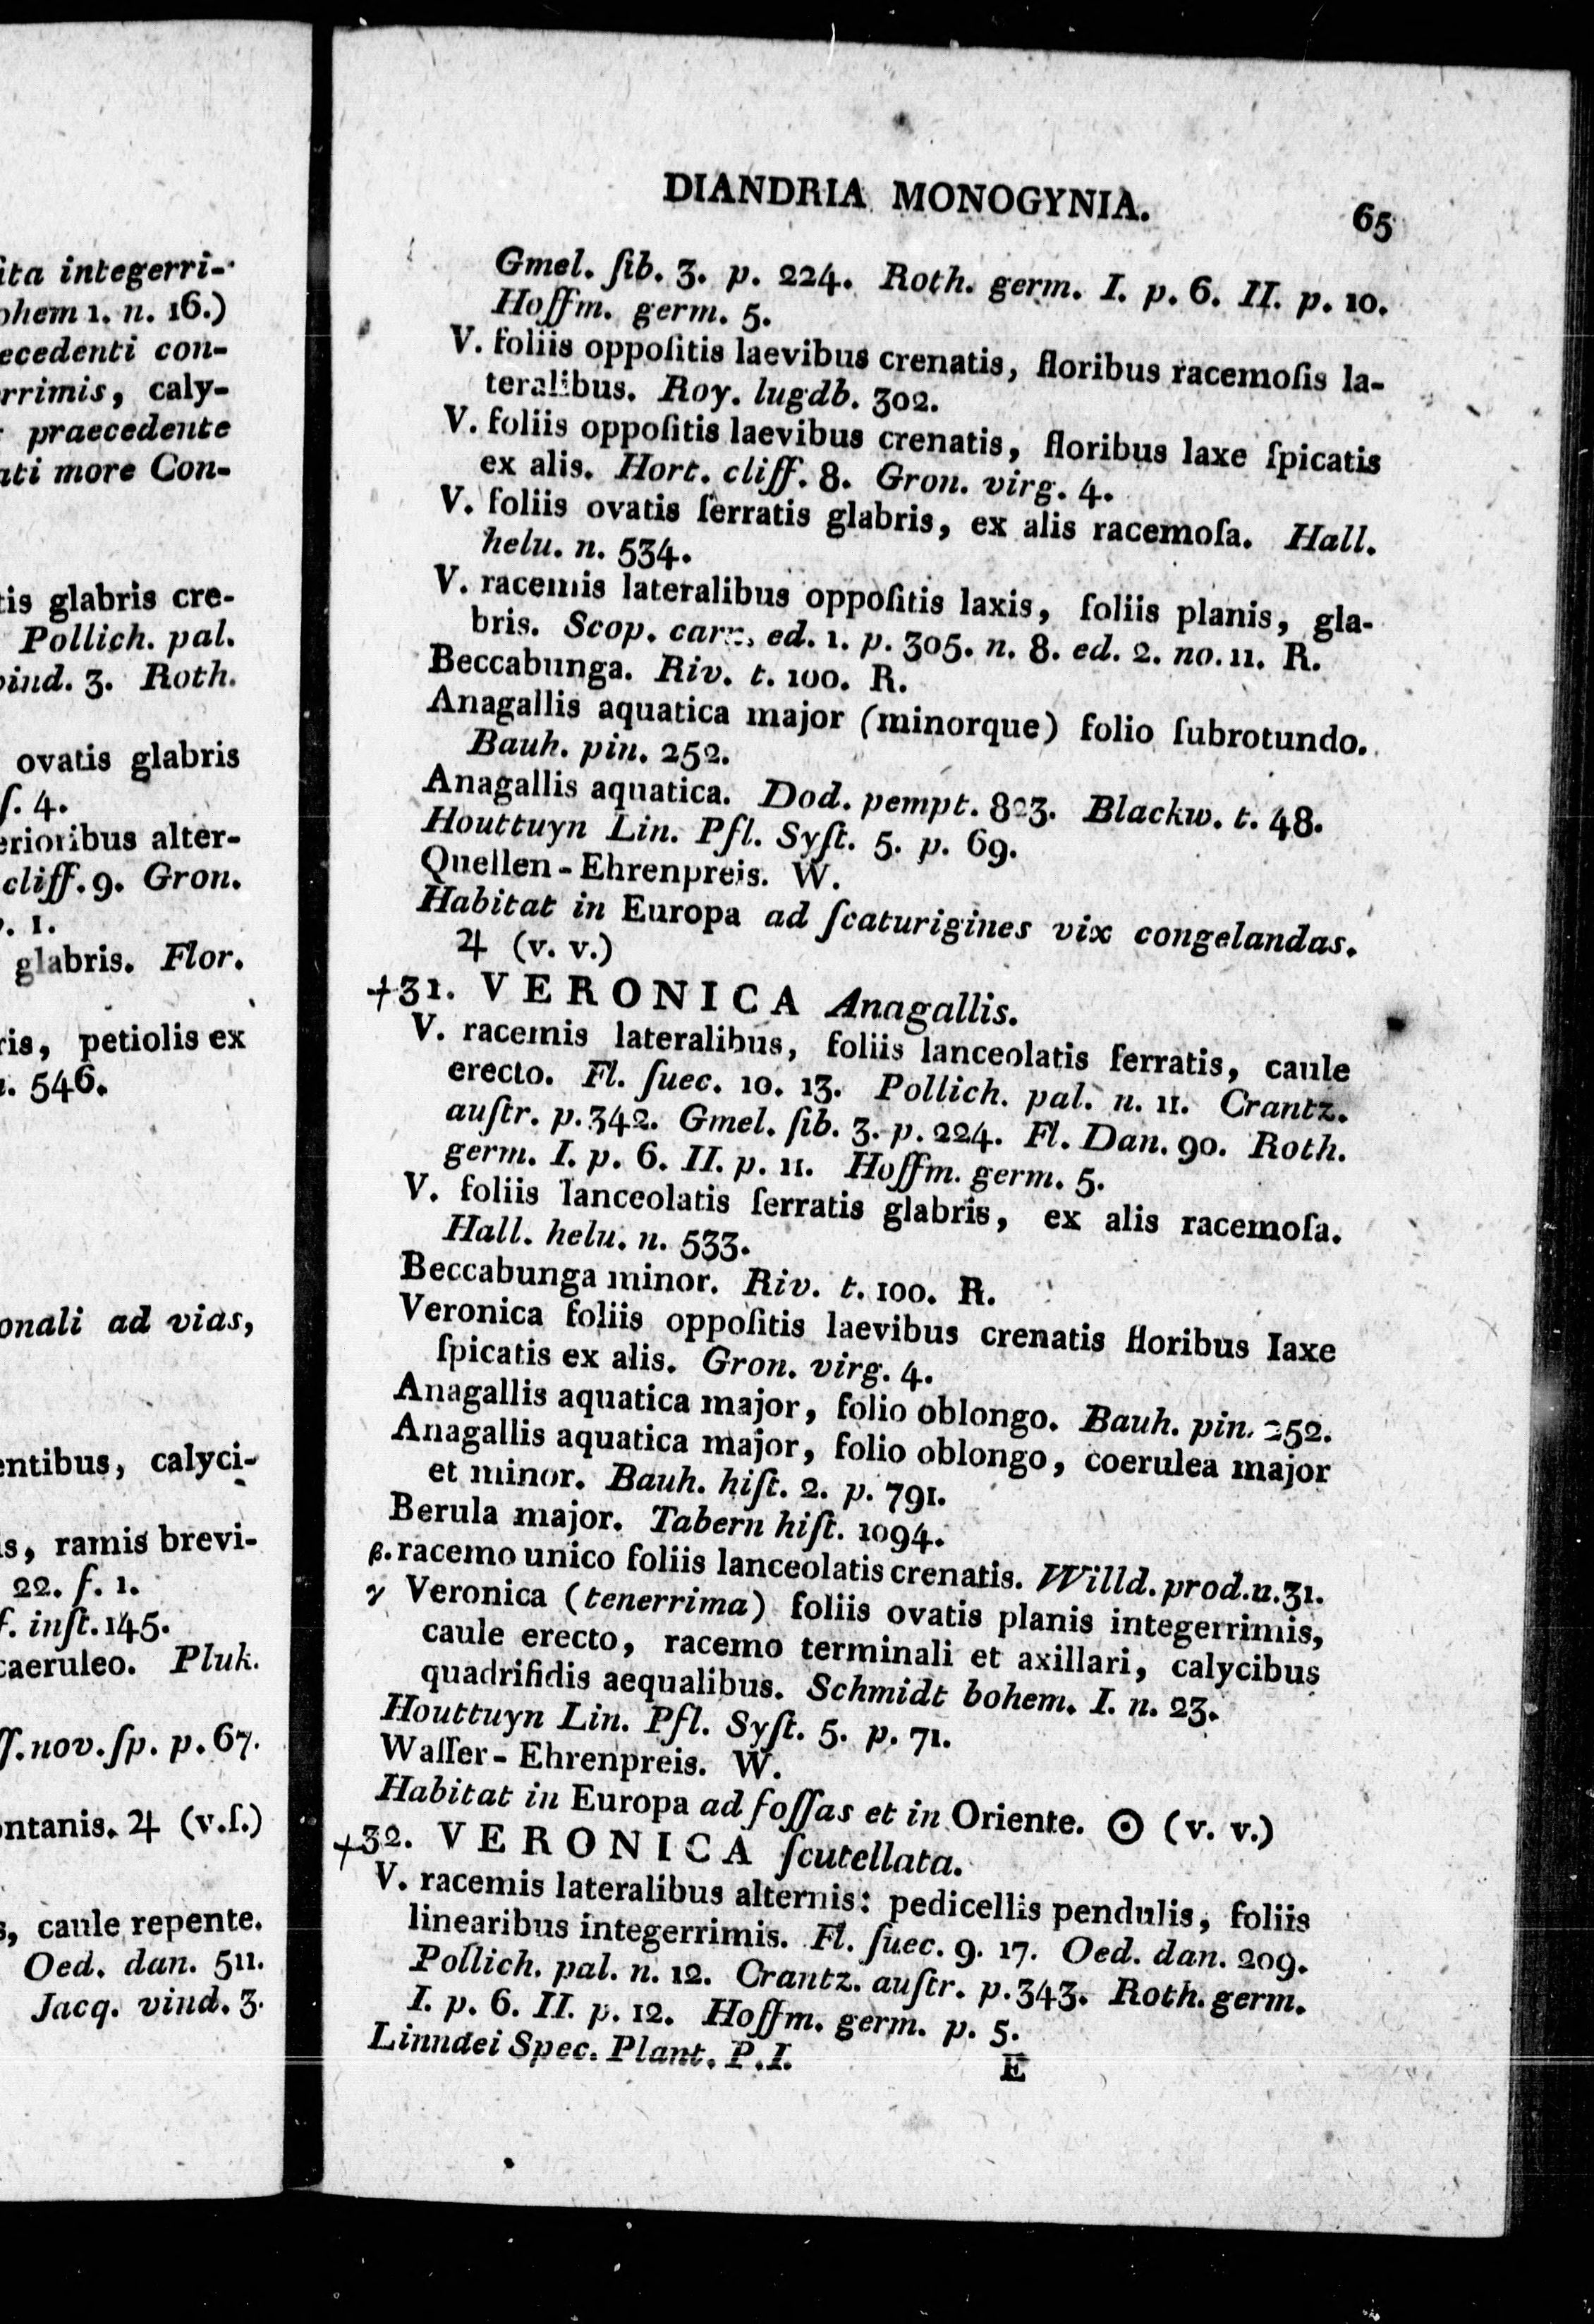 ita integerri-
ohem 1. n. 16.)
ecedenti con-
rrimis, caly-
praecedente
ati more Con-
tis glabris cre-
Pollich. pal.
vind. 3. Roth.
ovatis glabris
ſ. 4.
erioribus alter-
cliff. 9. Gron.
. 1.
glabris. Flor.
ris, petiolis ex
. 546.
onali ad vias,
entibus, calyci-
s, ramis brevi-
22. f. 1.
f. inſt. 145.
caeruleo. Pluk.
ſſ. nov. ſp. p. 67.
ontanis. ♃ (v.ſ.)
s, caule repente.
Oed. dan. 511.
Jacq. vind. 3.
DIANDRIA MONOGYNIA. 65
Gmel. ſib. 3. p. 224. Roth. germ. I. p. 6. II. p. 10.
Hoffm. germ. 5.
V. foliis oppoſitis laevibus crenatis, floribus racemoſis la-
teralibus. Roy. lugdb. 302.
V. foliis oppoſitis laevibus crenatis, floribus laxe ſpicatis
ex alis. Hort. cliff. 8. Gron. virg. 4.
V. foliis ovatis ſerratis glabris, ex alis racemoſa. Hall.
helu. n. 534.
V. racemis lateralibus oppoſitis laxis, foliis planis, gla-
bris. Scop. carn. ed. 1. p. 305. n. 8. ed. 2. no. 11. R.
Beccabunga. Riv. t. 100. R.
Anagallis aquatica major (minorque) folio ſubrotundo.
Bauh. pin. 252.
Anagallis aquatica. Dod. pempt. 823. Blackw. t. 48.
Houttuyn Lin. Pfl. Syſt. 5. p. 69.
Quellen-Ehrenpreis. W.
Habitat in Europa ad ſcaturigines vix congelandas.
♃ (v. v.)
+31. VERONICA Anagallis.
V. racemis lateralibus, foliis lanceolatis ſerratis, caule
erecto. Fl. ſuec. 10. 13. Pollich. pal. n. 11. Crantz.
auſtr. p. 342. Gmel. ſib. 3. p. 224. Fl. Dan. 90. Roth.
germ. I. p. 6. II. p. 11. Hoffm. germ. 5.
V. foliis lanceolatis ſerratis glabris, ex alis racemoſa.
Hall. helu. n. 533.
Beccabunga minor. Riv. t. 100. R.
Veronica foliis oppoſitis laevibus crenatis floribus laxe
ſpicatis ex alis. Gron. virg. 4.
Anagallis aquatica major, folio oblongo. Bauh. pin. 252.
Anagallis aquatica major, folio oblongo, coerulea major
et minor. Bauh. hiſt. 2. p. 791.
Berula major. Tabern hiſt. 1094.
β. racemo unico foliis lanceolatis crenatis. Willd. prod. n. 31.
γ Veronica (tenerrima) foliis ovatis planis integerrimis,
caule erecto, racemo terminali et axillari, calycibus
quadrifidis aequalibus. Schmidt bohem. I. n. 23.
Houttuyn Lin. Pfl. Syſt. 5. p. 71.
Waſſer-Ehrenpreis. W.
Habitat in Europa ad foſſas et in Oriente. ☉ (v. v.)
+32. VERONICA ſcutellata.
V. racemis lateralibus alternis: pedicellis pendulis, foliis
linearibus integerrimis. Fl. ſuec. 9. 17. Oed. dan. 209.
Pollich. pal. n. 12. Crantz. auſtr. p. 343. Roth. germ.
I. p. 6. II. p. 12. Hoffm. germ. p. 5.
Linnaei Spec. Plant. P. I. E